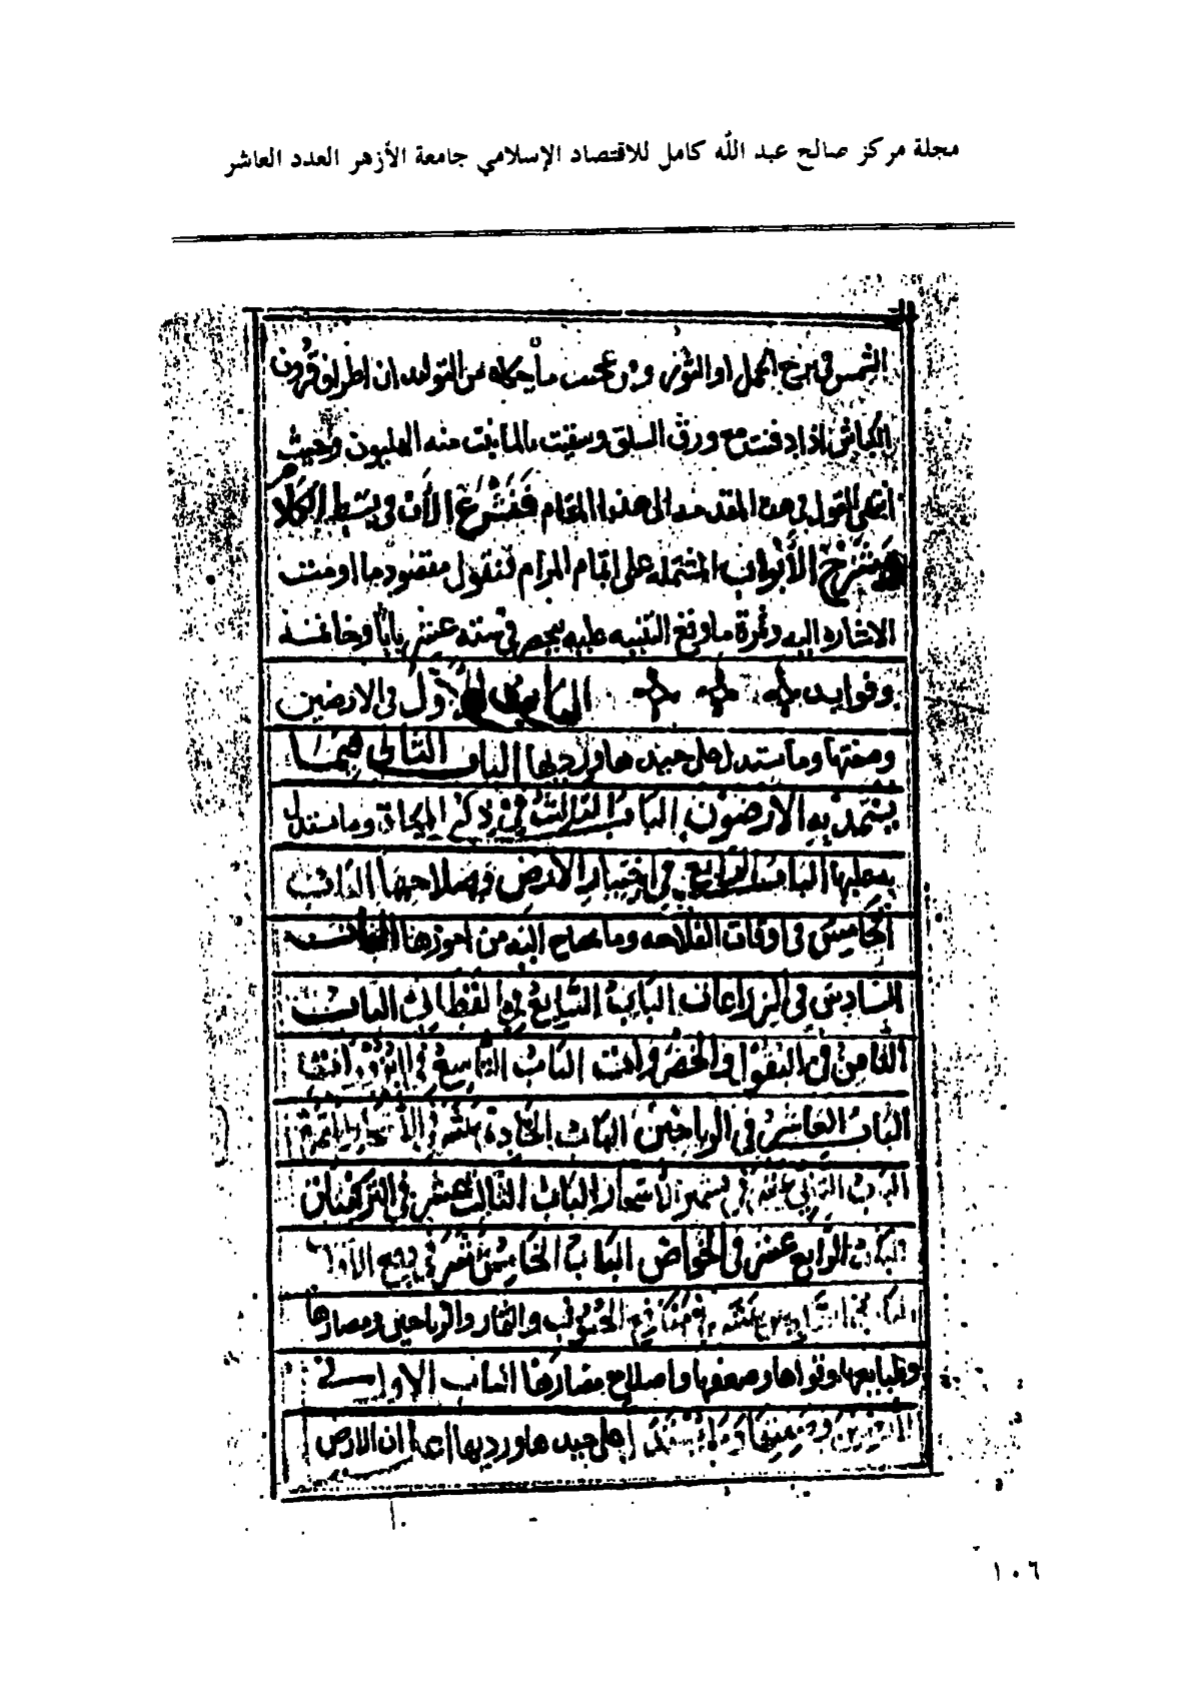 مجلة مركز صالح عبد الله كامل للاقتصاد الإسلامي جامعة الأزهر العدد العاشر
الشمس في برج الحمل او الثور ومن عجيب ما من التولد ان اطراف قرون
الكباش اذا دفنت مع ورق السلق وسقيت بالما ينبت منه الهليون وحيث
انتهى القول في هذه المقدمه الى هذا المقام فنشرع الأن في بسط الكلام
الأبواب المشتمله على اتمام المرام فنقول مقصود ما اومئت
الاشاره اليه وثمرة ما وقع التنبيه عليه ينحصر في سته عشر بابا وخاتمه
وفوايد الباب الأول في الارضين
وصفتها وما يستدل على جيدها ورديها الباب الثاني فيما
الارضون الباب الثالث في ذكر المياه وما يستدل
به عليها الباب الرابع في اختيار الأرض وصلاحها الباب
الخامس في اوقات الفلاحه وما يحتاج اليه من امورها الباب
السادس في الزراعات الباب السابع في القطاني الباب
الثامن في البقول والخضروات الباب التاسع في
الباب العاشر في الرياحين الباب الحادي عشر في الأشجار المثمرة
الباب الثاني عشر في الأشجار الباب الثالث عشر في التركيبات
الباب الرابع عشر في الخواص الباب الخامس عشر في
الباب السادس عشر في منافع الحبوب والثمار والرياحين ومضارها
وطبايعها وقواها وصفتها واصلاح مضارها الباب الاول في
الارضين وصفتها وما يستدل على جيدها ورديها ان الارض
١٠٦